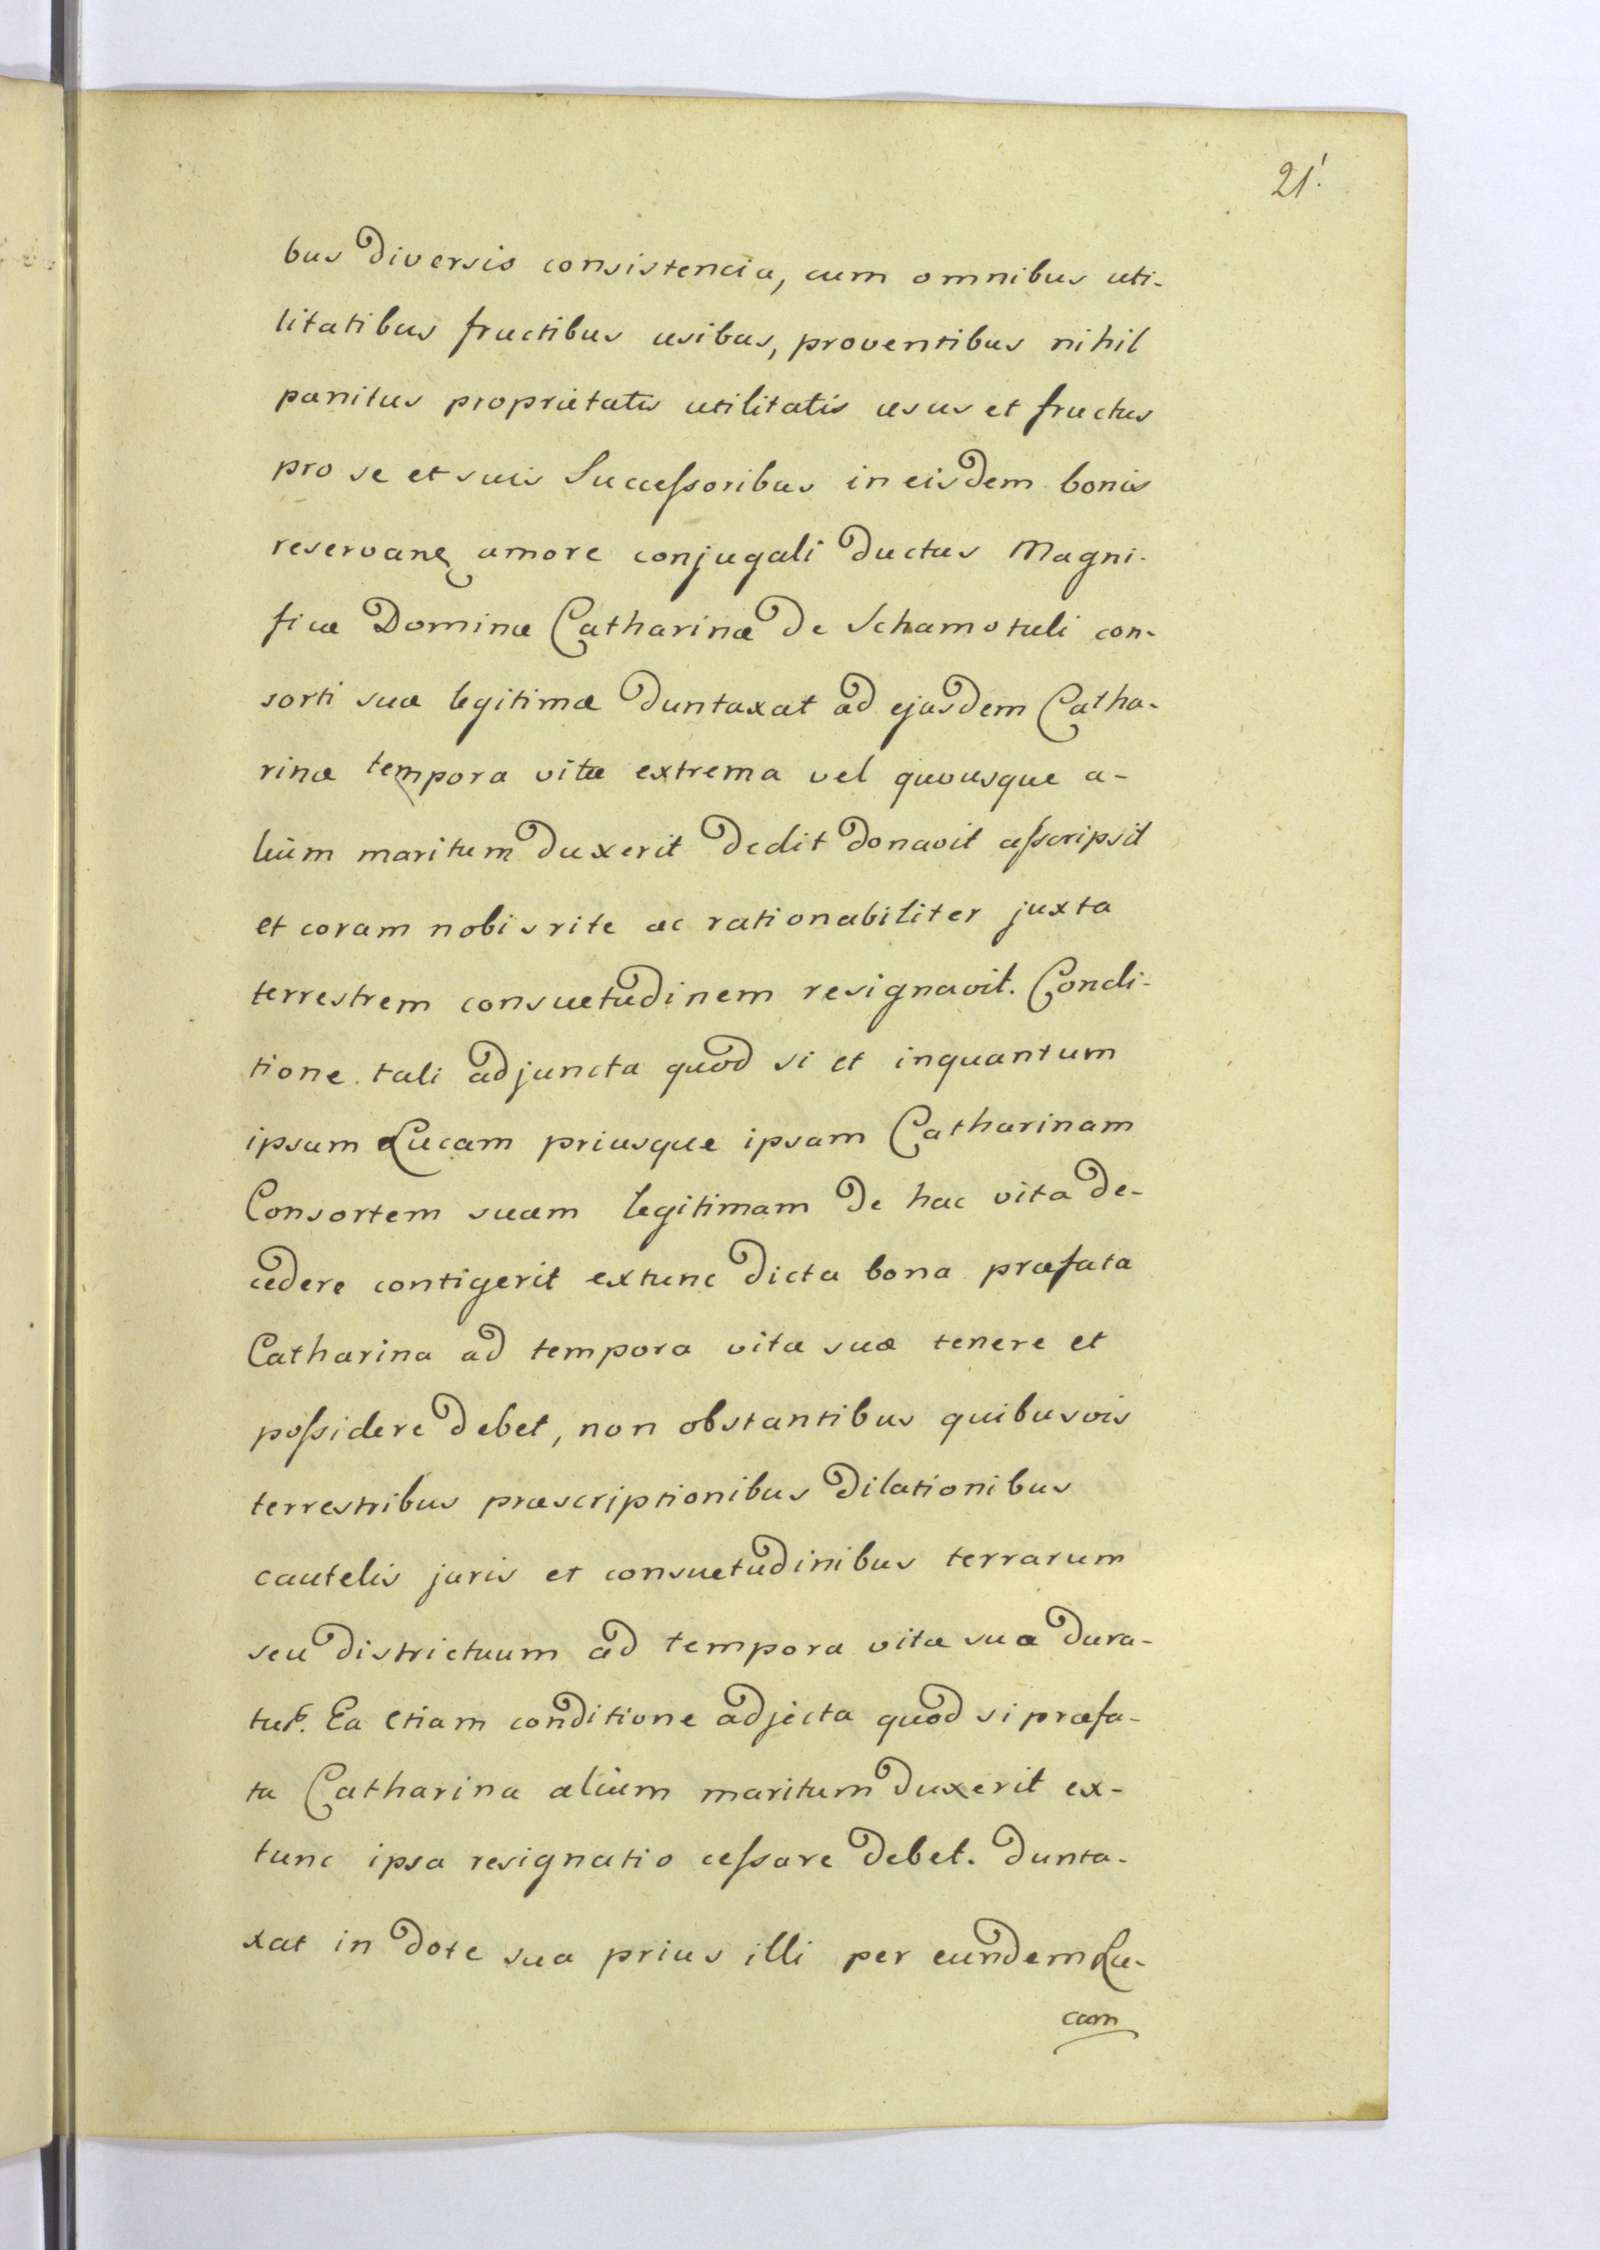 21.
bus diversis consistencia, cum omnibus uti-
litatibus fructibus usibus, proventibus nihil
panitus proprietatis utilitatis usus et fructus
pro se et suis Successoribus in eisdem bonis
reservans amore conjugali ductus Magni-
ficæ Dominæ Catharinæ de Schamotuli con-
sorti suæ legitimæ duntaxat ad ejusdem Catha-
rinæ tempora vitæ extrema vel quousque a-
lium maritum duxerit dedit donavit asscripsit
et coram nobis rite ac rationabiliter juxta
terrestrem consuetudinem resignavit. Condi-
tione tali adjuncta quod si et inquantum
ipsum Lucam priusque ipsam Catharinam
Consortem suam legitimam de hac vita de-
cedere contigerit extunc dicta bona præfata
Catharina ad tempora vitæ suæ tenere et
possidere debet, non obstantibus quibusvis
terrestribus præscriptionibus dilationibus
cautelis juris et consuetudinibus terrarum
seu districtuum ad tempora vitæ suæ dura-
tur. Ea etiam conditione adjecta quod si præfa-
ta Catharina alium maritum duxerit ex-
tunc ipsa resignatio cessare debet. dunta-
xat in dote sua prius illi per eundem Lu-
cam